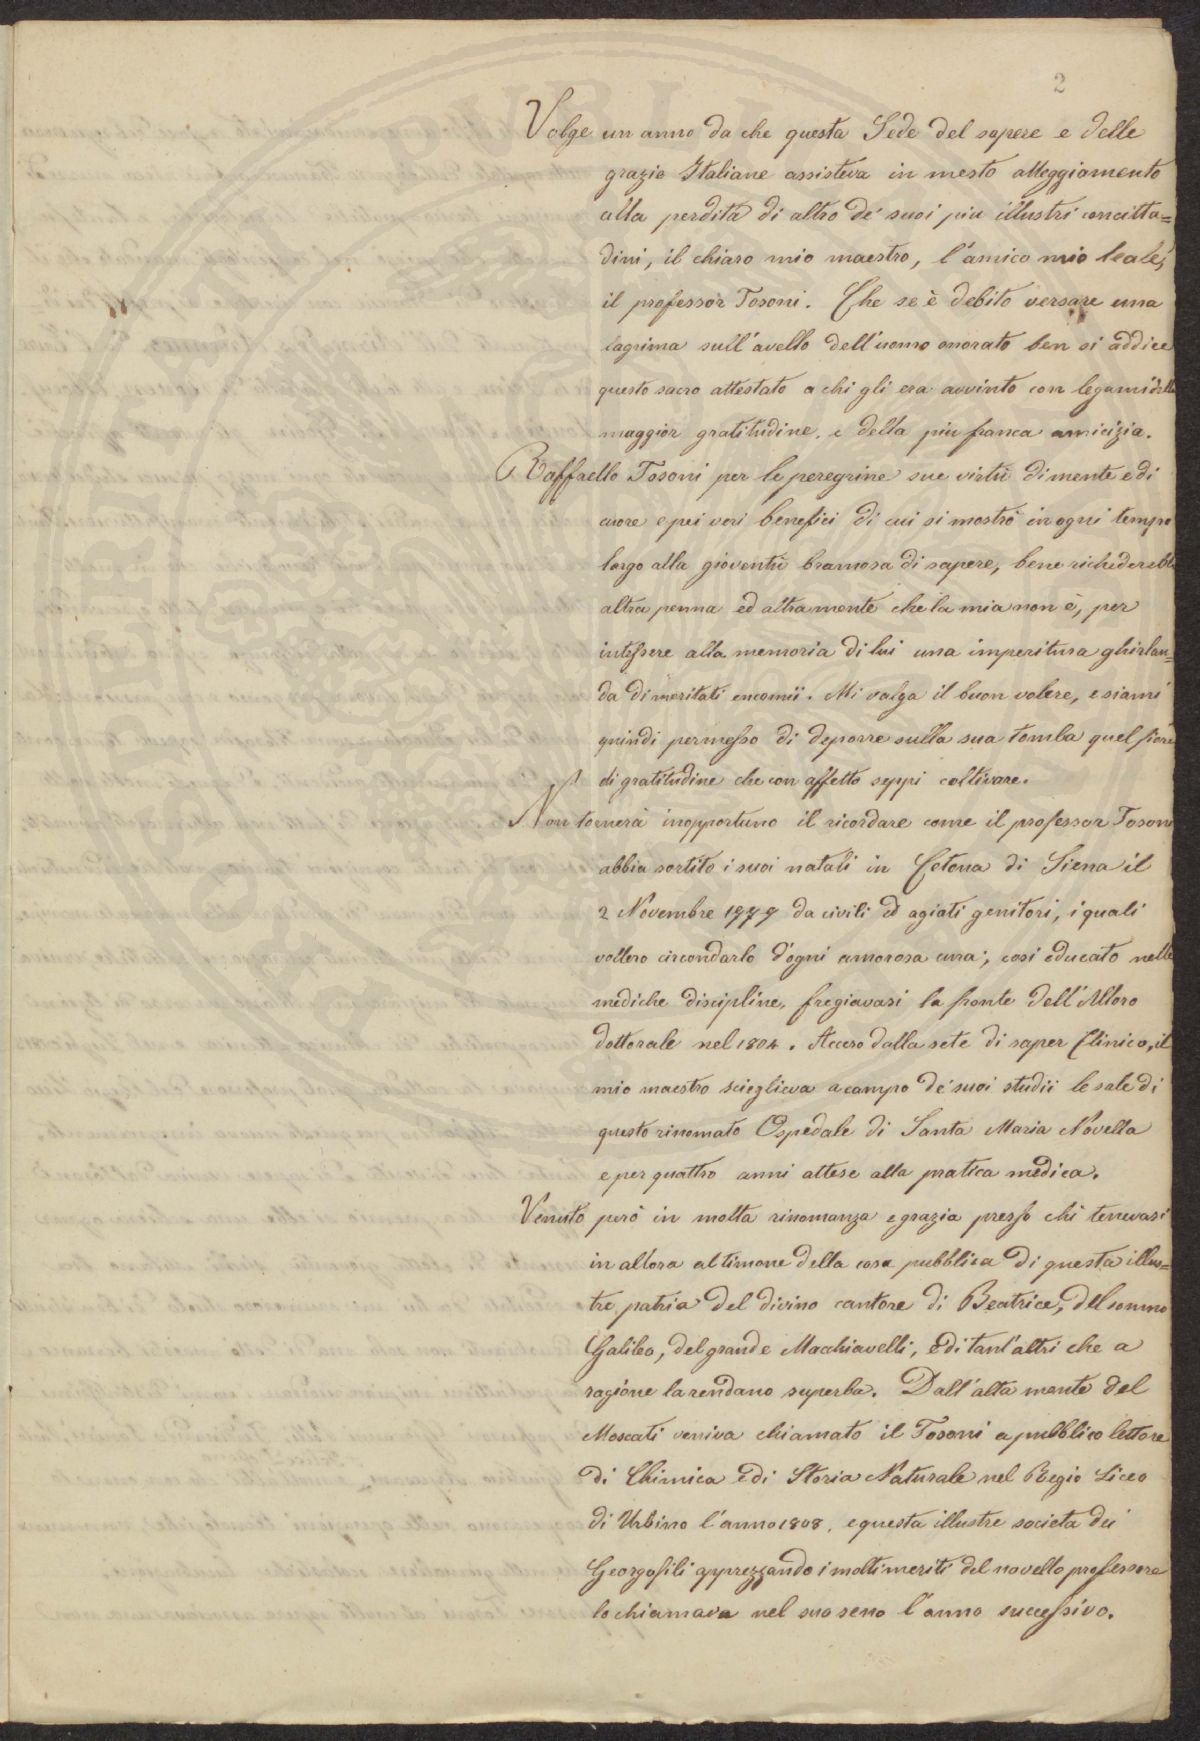 2
Volge un anno da che questa Sede del sapere e delle
grazie Italiane assisteva in mesto atteggiamento
alla perdita di altro de' suoi piu illustri concitta=
dini, il chiaro mio maestro, l'amico mio leale,
il professor Tosoni. Che se è debito versare una
lagrima sull'avello dell'uomo onorato ben si addice
questo sacro attestato a chi gli era avvinto con legami della
maggior gratitudine, e della piu franca amicizia.
Raffaello Tosoni per le peregrine sue virtù di mente e di
cuore e pei veri benefici di cui si mostrò in ogni tempo
largo alla gioventù bramosa di sapere, bene richiederebbe
altra penna ed altra mente che la mia non è, per
intessere alla memoria di lui una imperitura ghirlan=
da di meritati encomii. Mi valga il buon volere, e siami
quindi permesso di deporre sulla sua tomba quel fiore
di gratitudine che con affetto seppi coltivare.
Non tornerà inopportuno il ricordare come il professor Tosoni
abbia sortito i suoi natali in Cetona di Siena il
2 Novembre 1779 da civili ed agiati genitori, i quali
vollero circondarlo d'ogni amorosa cura; così educato nelle
mediche discipline, fregiavasi la fronte dell'Alloro
dottorale nel 1804. Acceso dalla sete di saper Clinico, il
mio maestro scieglieva a campo de' suoi studii le sale di
questo rinomato Ospedale di Santa Maria Novella
e per quattro anni attese alla pratica medica.
Venuto però in molta rinomanza e grazia presso chi tenevasi
in allora al timone della cosa pubblica di questa illus=
tre patria del divino cantore di Beatrice, del sommo
Galileo, del grande Macchiavelli, e di tant'altri che a
ragione la rendano superba. Dall'alta mente del
Moscati veniva chiamato il Tosoni a pubblico lettore
di Chimica e di Storia Naturale nel Regio Liceo
di Urbino l'anno 1808, e questa illustre società dei
Georgofili apprezzando i molti meriti del novello professore
lo chiamava nel suo seno l'anno successivo.